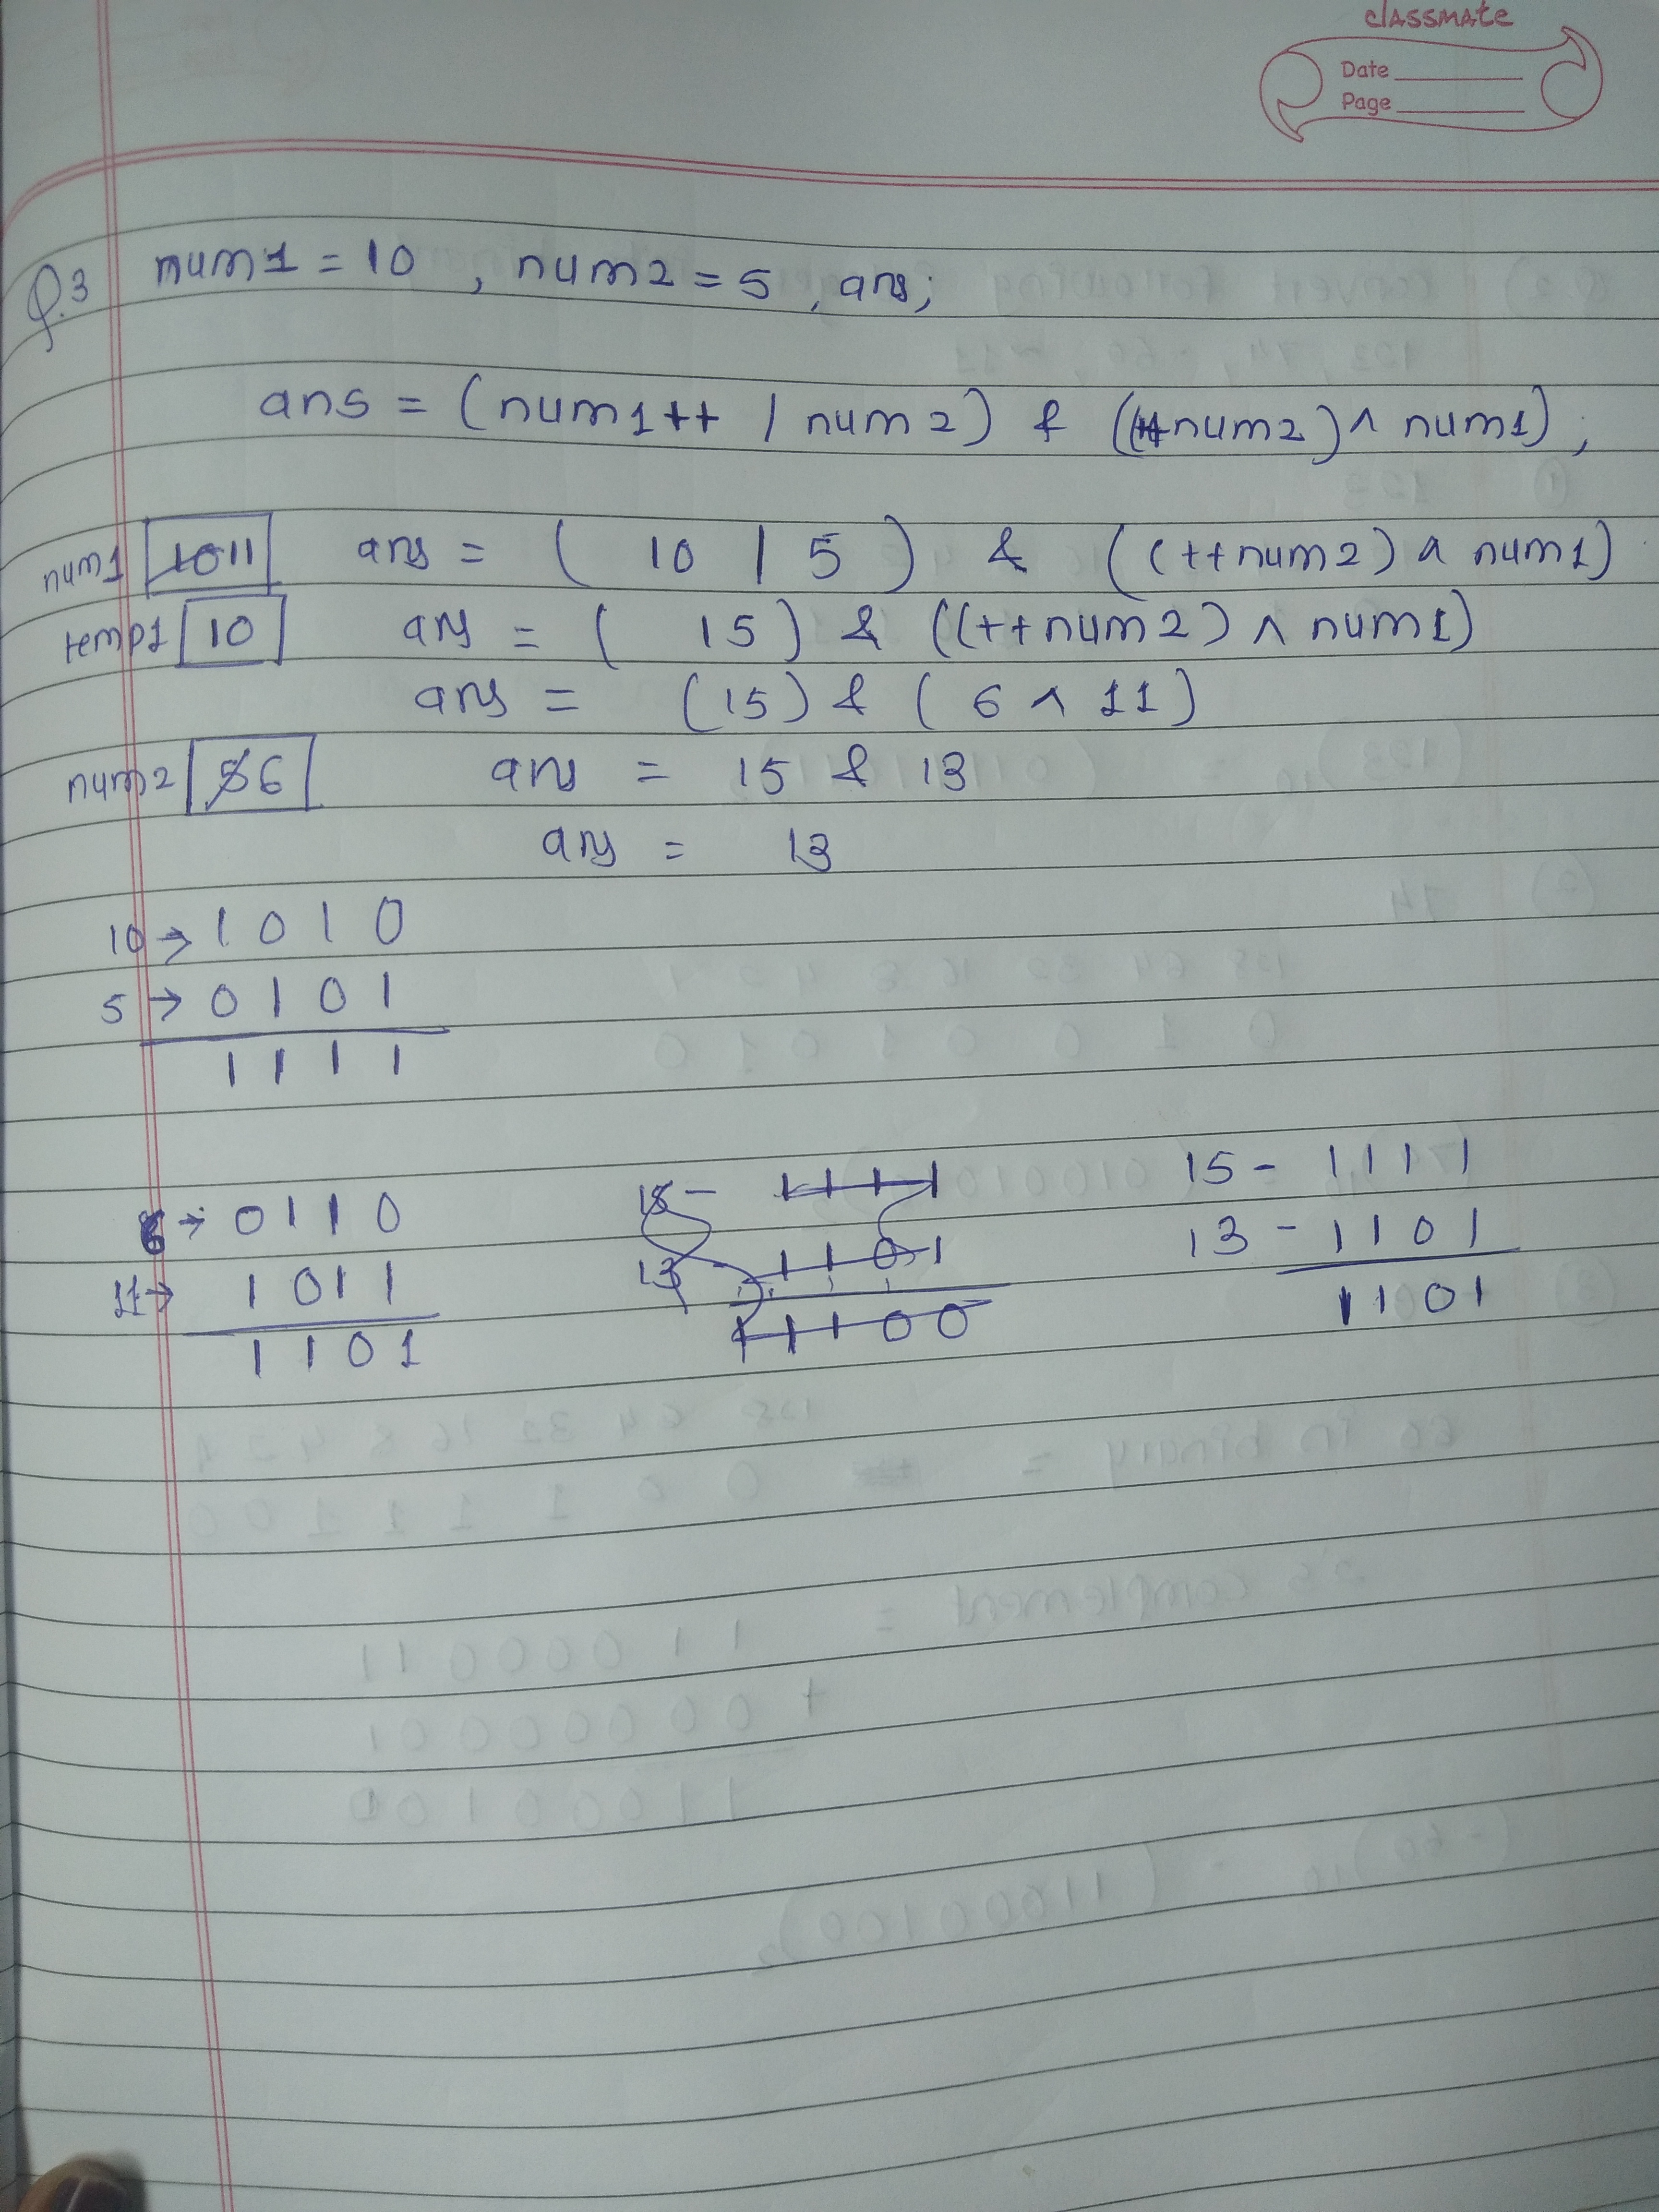 classmate
Date
Page
Q.3 num1 = 10 , num2 = 5 , ans;
ans = (num1++ | num2) & ((++num2) ^ num1);
num1 1011 ans = ( 10 | 5 ) & ((++num2) ^ num1)
temp1 10 ans = ( 15) & ((++num2) ^ num1)
ans = (15) & ( 6 ^ 11)
num2 56 ans = 15 & 13
ans = 13
10 → 1 0 1 0
5 → 0 1 0 1
1 1 1 1
6 → 0 1 1 0
11 → 1 0 1 1
1 1 0 1
15 - 1 1 1 1
13 - 1 1 0 1
1 1 1 0 0
15 - 1 1 1 1
13 - 1 1 0 1
1 1 0 1